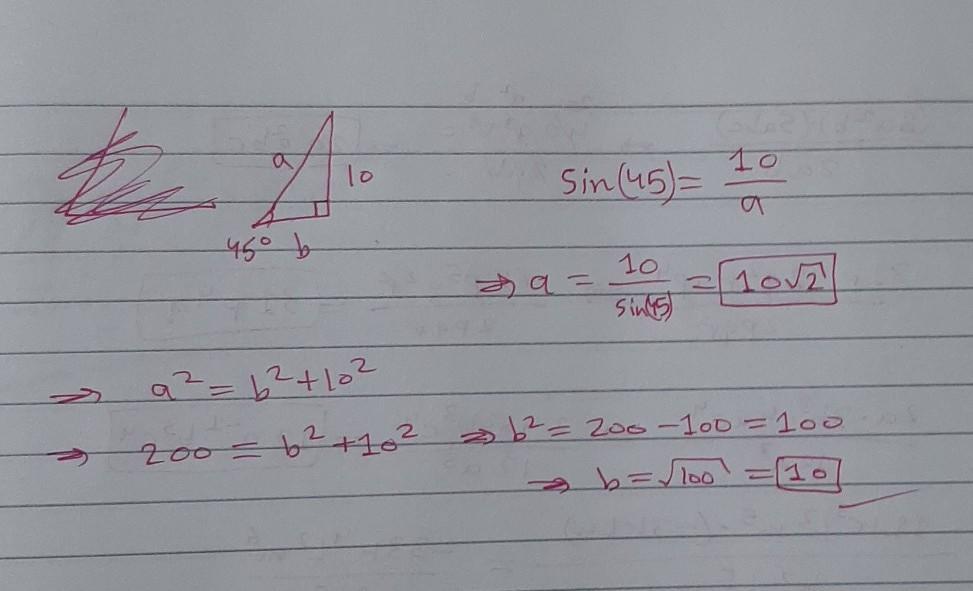 a
10
45° b
sin(45) = 10/a
⇒ a = 10/sin(45) = 10√2
⇒ a² = b² + 10²
⇒ 200 = b² + 10² ⇒ b² = 200 - 100 = 100
⇒ b = √100 = 10